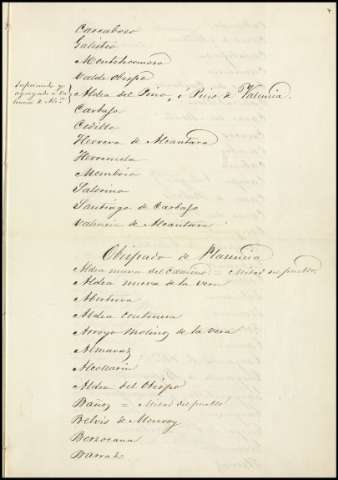 Carcaboso
Galisteo
Montehermoso
Valde Obispo
Aldea del Pino, ó Pino de Valencia.
Carbajo
Cedillo
Herrera de Alcantara
Herreruela
Membrio
Salorino
Santiago de Carbajo
Valencia de Alcantara
Obispado de Plasencia
Aldea nueva del Camino = Mitad del pueblo
Aldea nueva de la vera
Abertura
Aldea centenera
Arroyo molinos de la vera
Almaraz
Alcollarin
Aldea del Obispo
Baños = Mitad del pueblo
Belvis de Monroy
Berzocana
Barrado